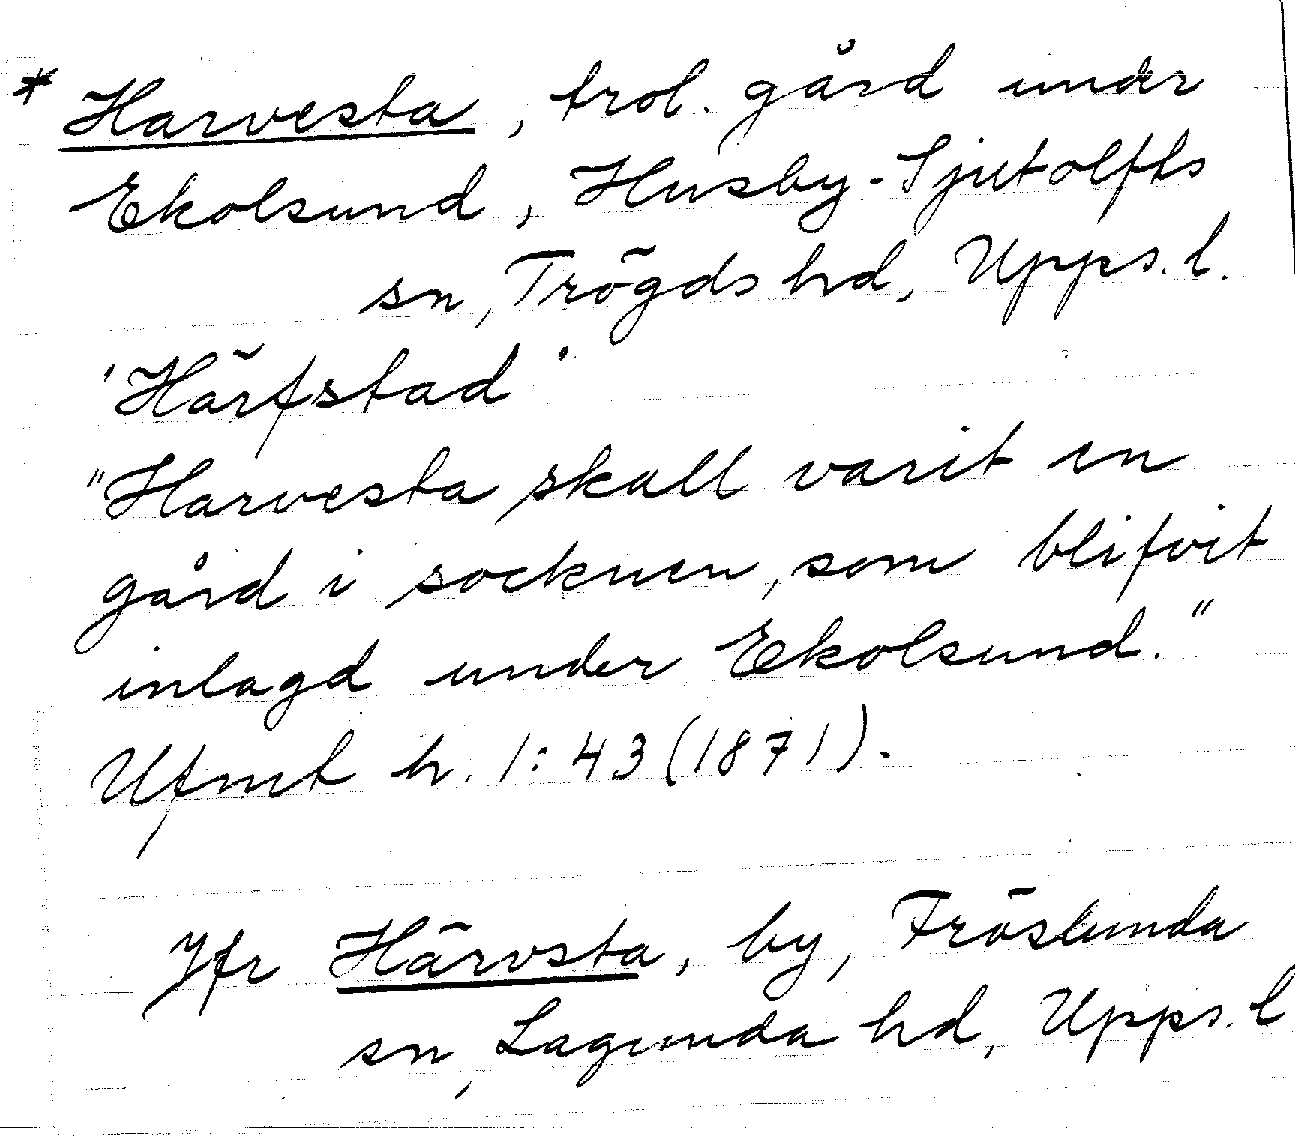 * Harvesta, trol. gård under
Ekolsund, Husby-Sjutolfts
sn, Trögds hd, Upps. l.
'Härfstad'
"Harvesta skall varit en
gård i socknen, som blifvit
inlagd under Ekolsund."
Ufmt h. 1:43 (1871).
Jfr Härvsta, by, Fröslunda
sn, Lagunda hd, Upps. l